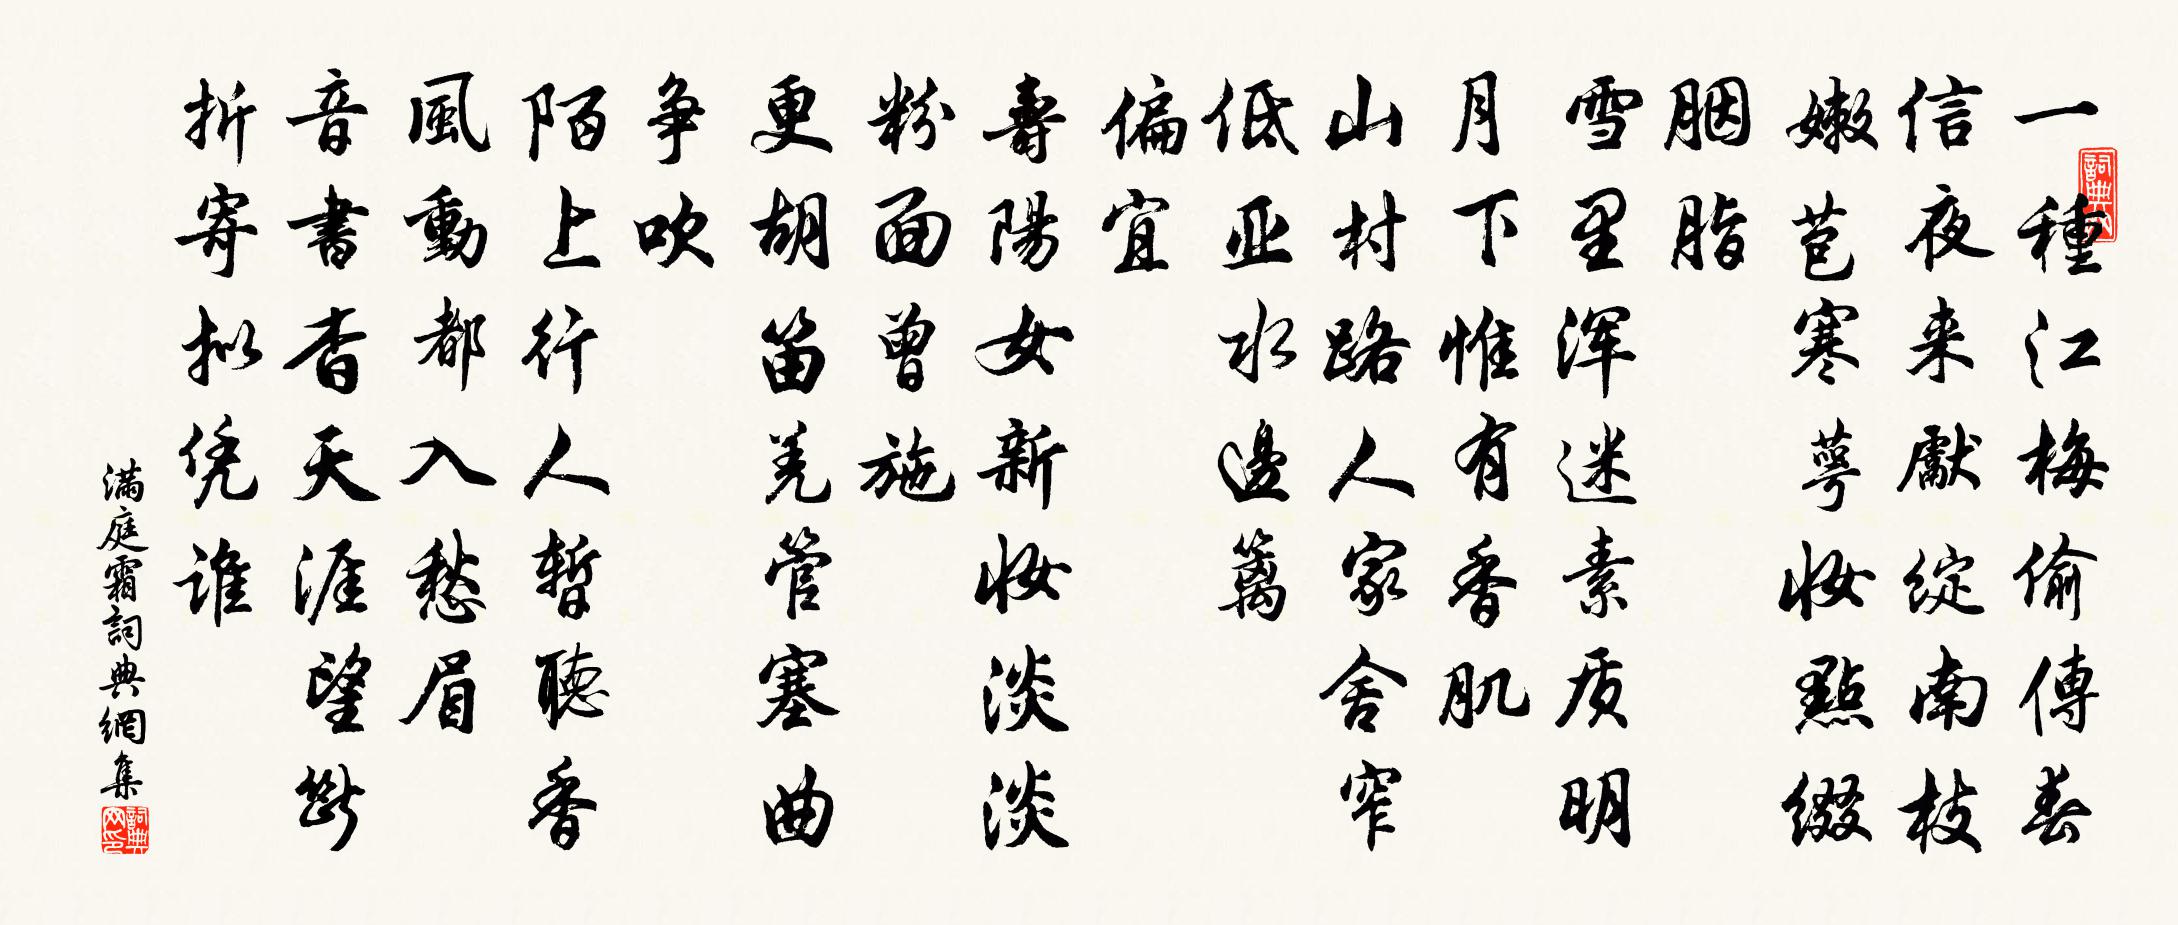 一種江梅偷傳春
信夜来獻綻南枝
嫩苞寒萼妝點綴
胭脂
雪里浑迷素质明
月下惟有香肌
山村路人家舍窄
低亚水邊籬
偏宜
壽陽女新妝淡淡
粉面曾施
更胡笛羌管塞曲
争吹
陌上行人暫聽香
風動都入愁眉
音書杳天涯望斷
折寄拟凭谁
满庭霜詞典網集